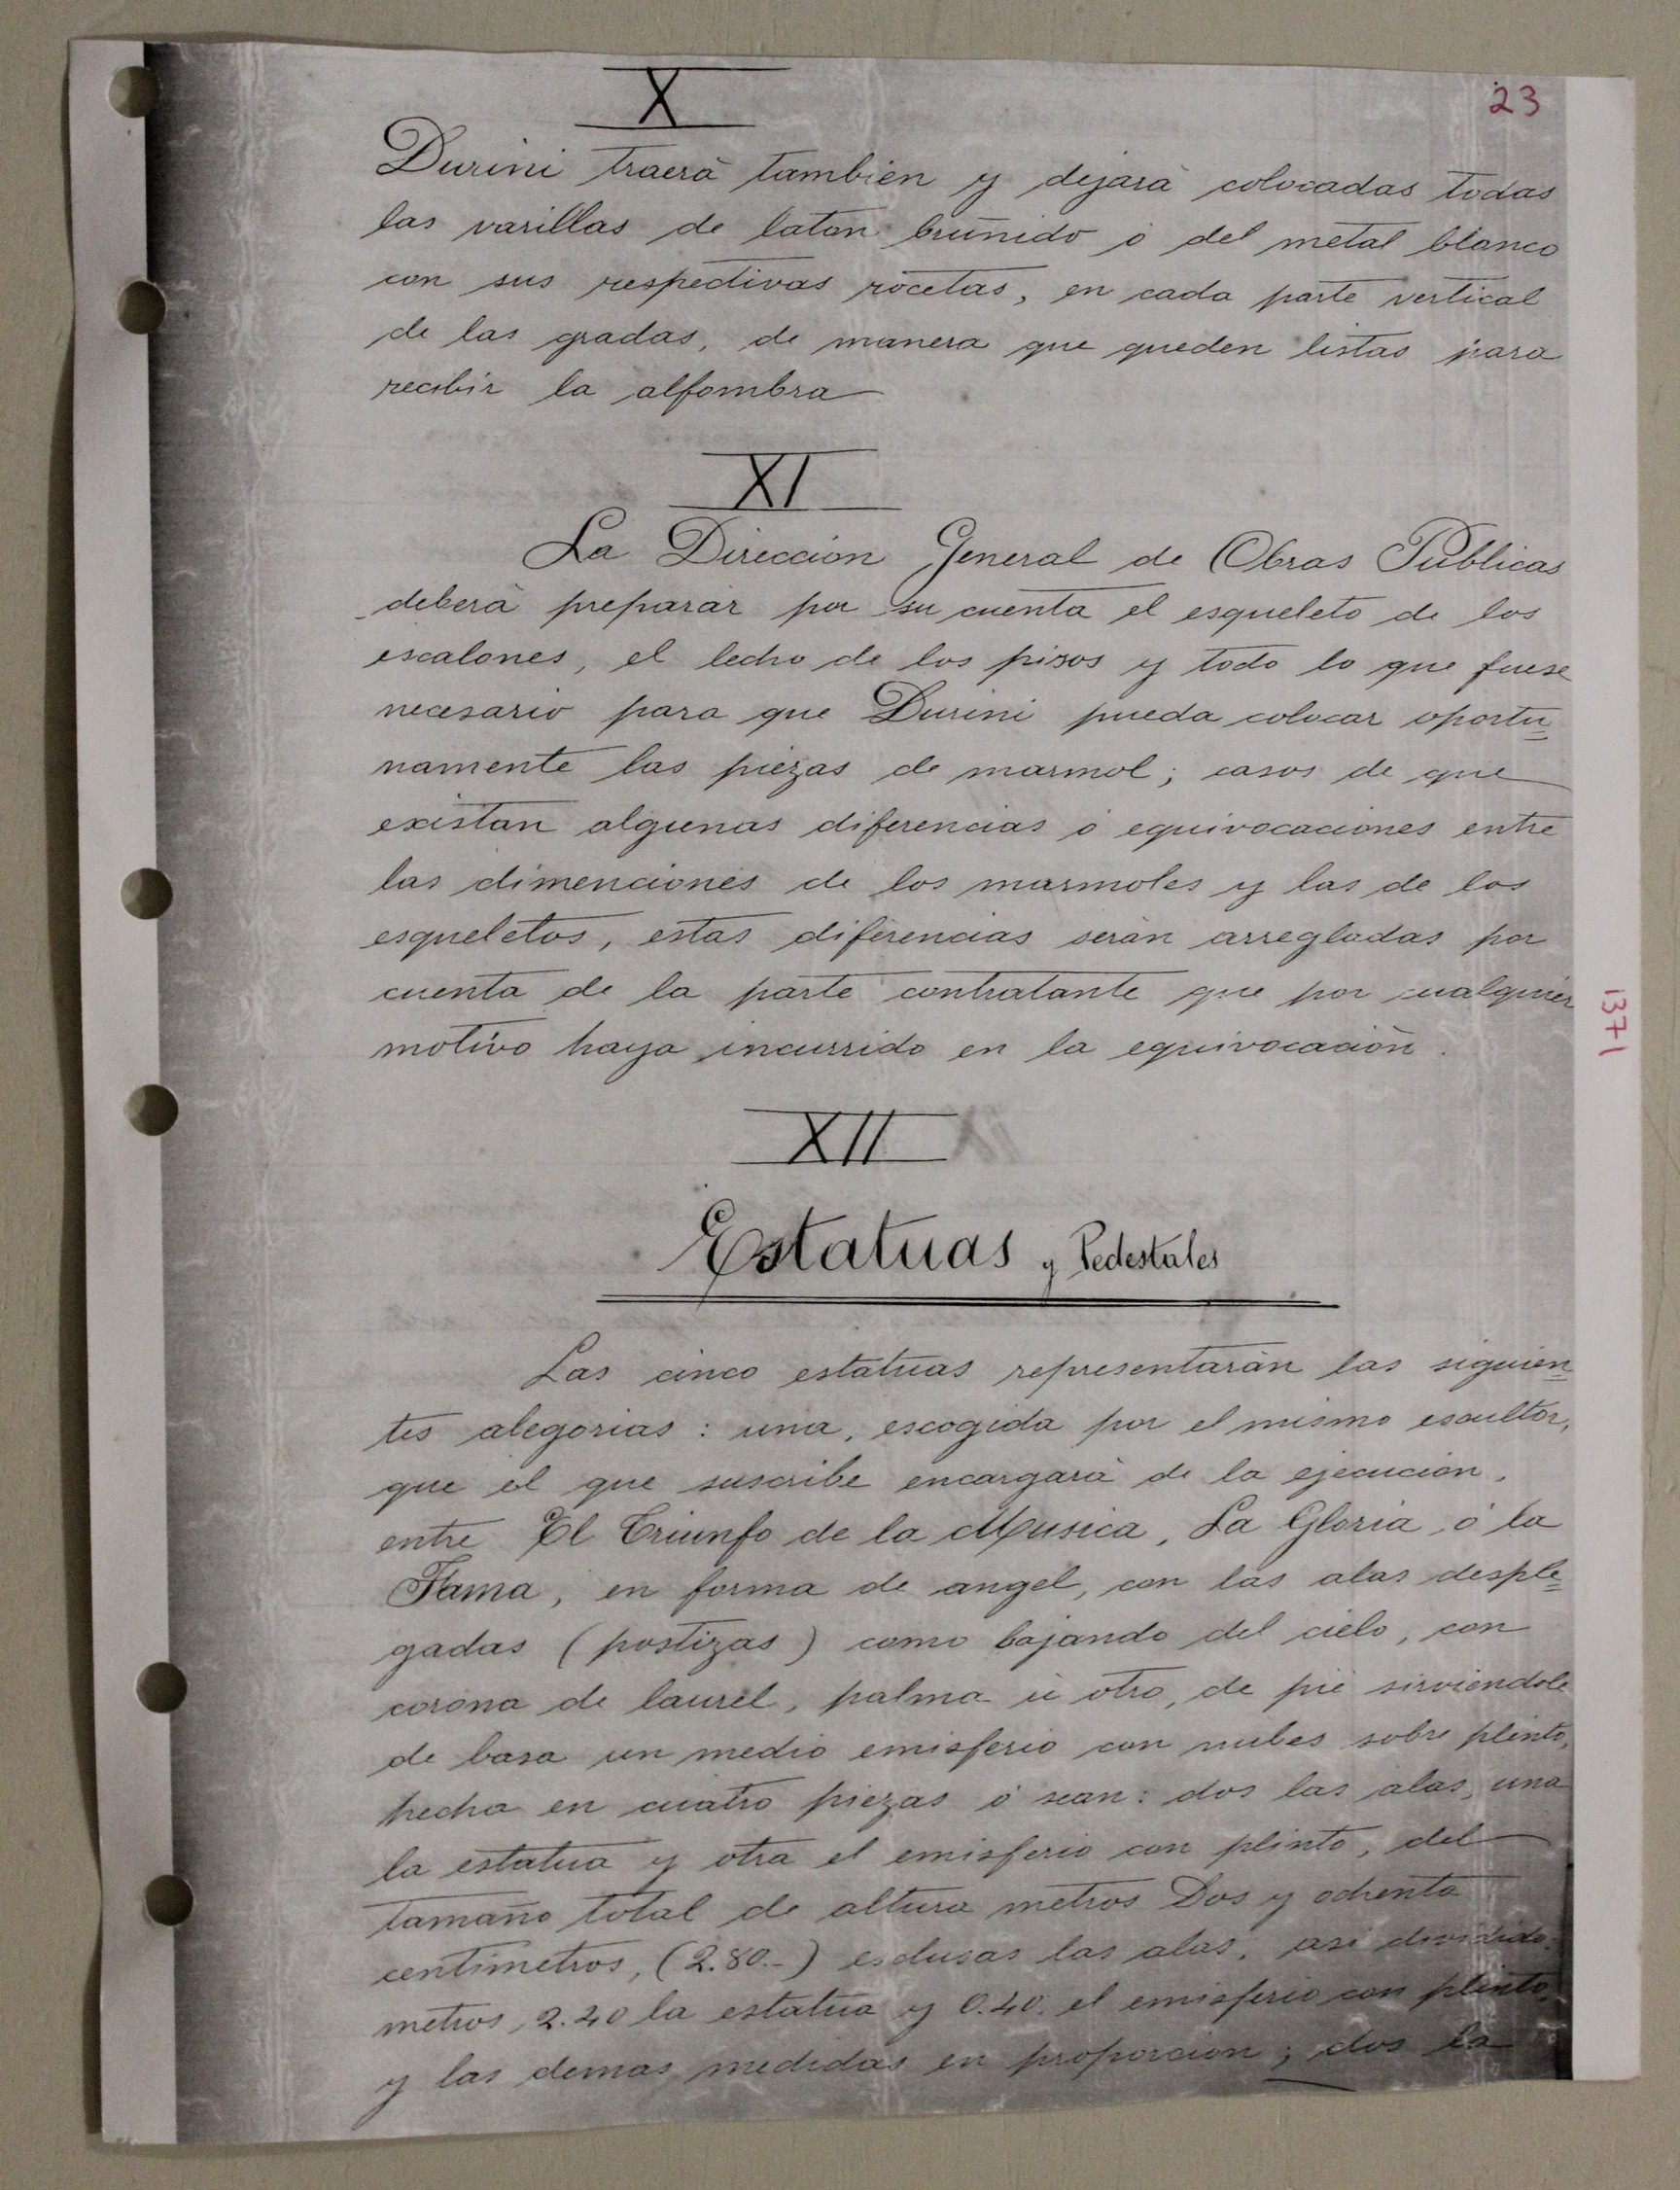 X
23
Durini traerà tambien y dejarà colocadas todas
las varillas de laton bruñido ò del metal blanco
con sus respectivas rocetas, en cada parte vertical
de las gradas, de manera que queden listas para
recibir la alfombra
XI
La Direccion General de Obras Publicas
deberà preparar por su cuenta el esqueleto de los
escalones, el lecho de los pisos y todo lo que fuese
necesario para que Durini pueda colocar oportu=
namente las piezas de marmol; casos de que
existan algunas diferencias ò equivocaciones entre
las dimenciones de los marmoles y las de los
esqueletos, estas diferencias seràn arregladas por
cuenta de la parte contratante que por cualquier
motivo haya incurrido en la equivocaciòn.
1371
XII
Estatuas y Pedestales
Las cinco estatuas representaràn las siguien=
tes alegorias: una, escogida por el mismo escultor,
que el que suscribe encargarà de la ejecucion,
entre El Triunfo de la Musica, La Gloria, ò la
Fama, en forma de angel, con las alas desple=
gadas (postizas) como bajando del cielo, con
corona de laurel, palma ù otro, de piè sirviendole
de basa un medio emisferio con nubes sobre plinto,
hecha en cuatro piezas ò sean: dos las alas, una
la estatua y otra el emisferio con plinto, del
tamaño total de altura metros Dos y ochenta
centimetros, (2.80.-) esclusas las alas, asi dividido:
metros, 2.40 la estatua y 0.40. el emisferio con plinto,
y las demas medidas en proporcion; dos la